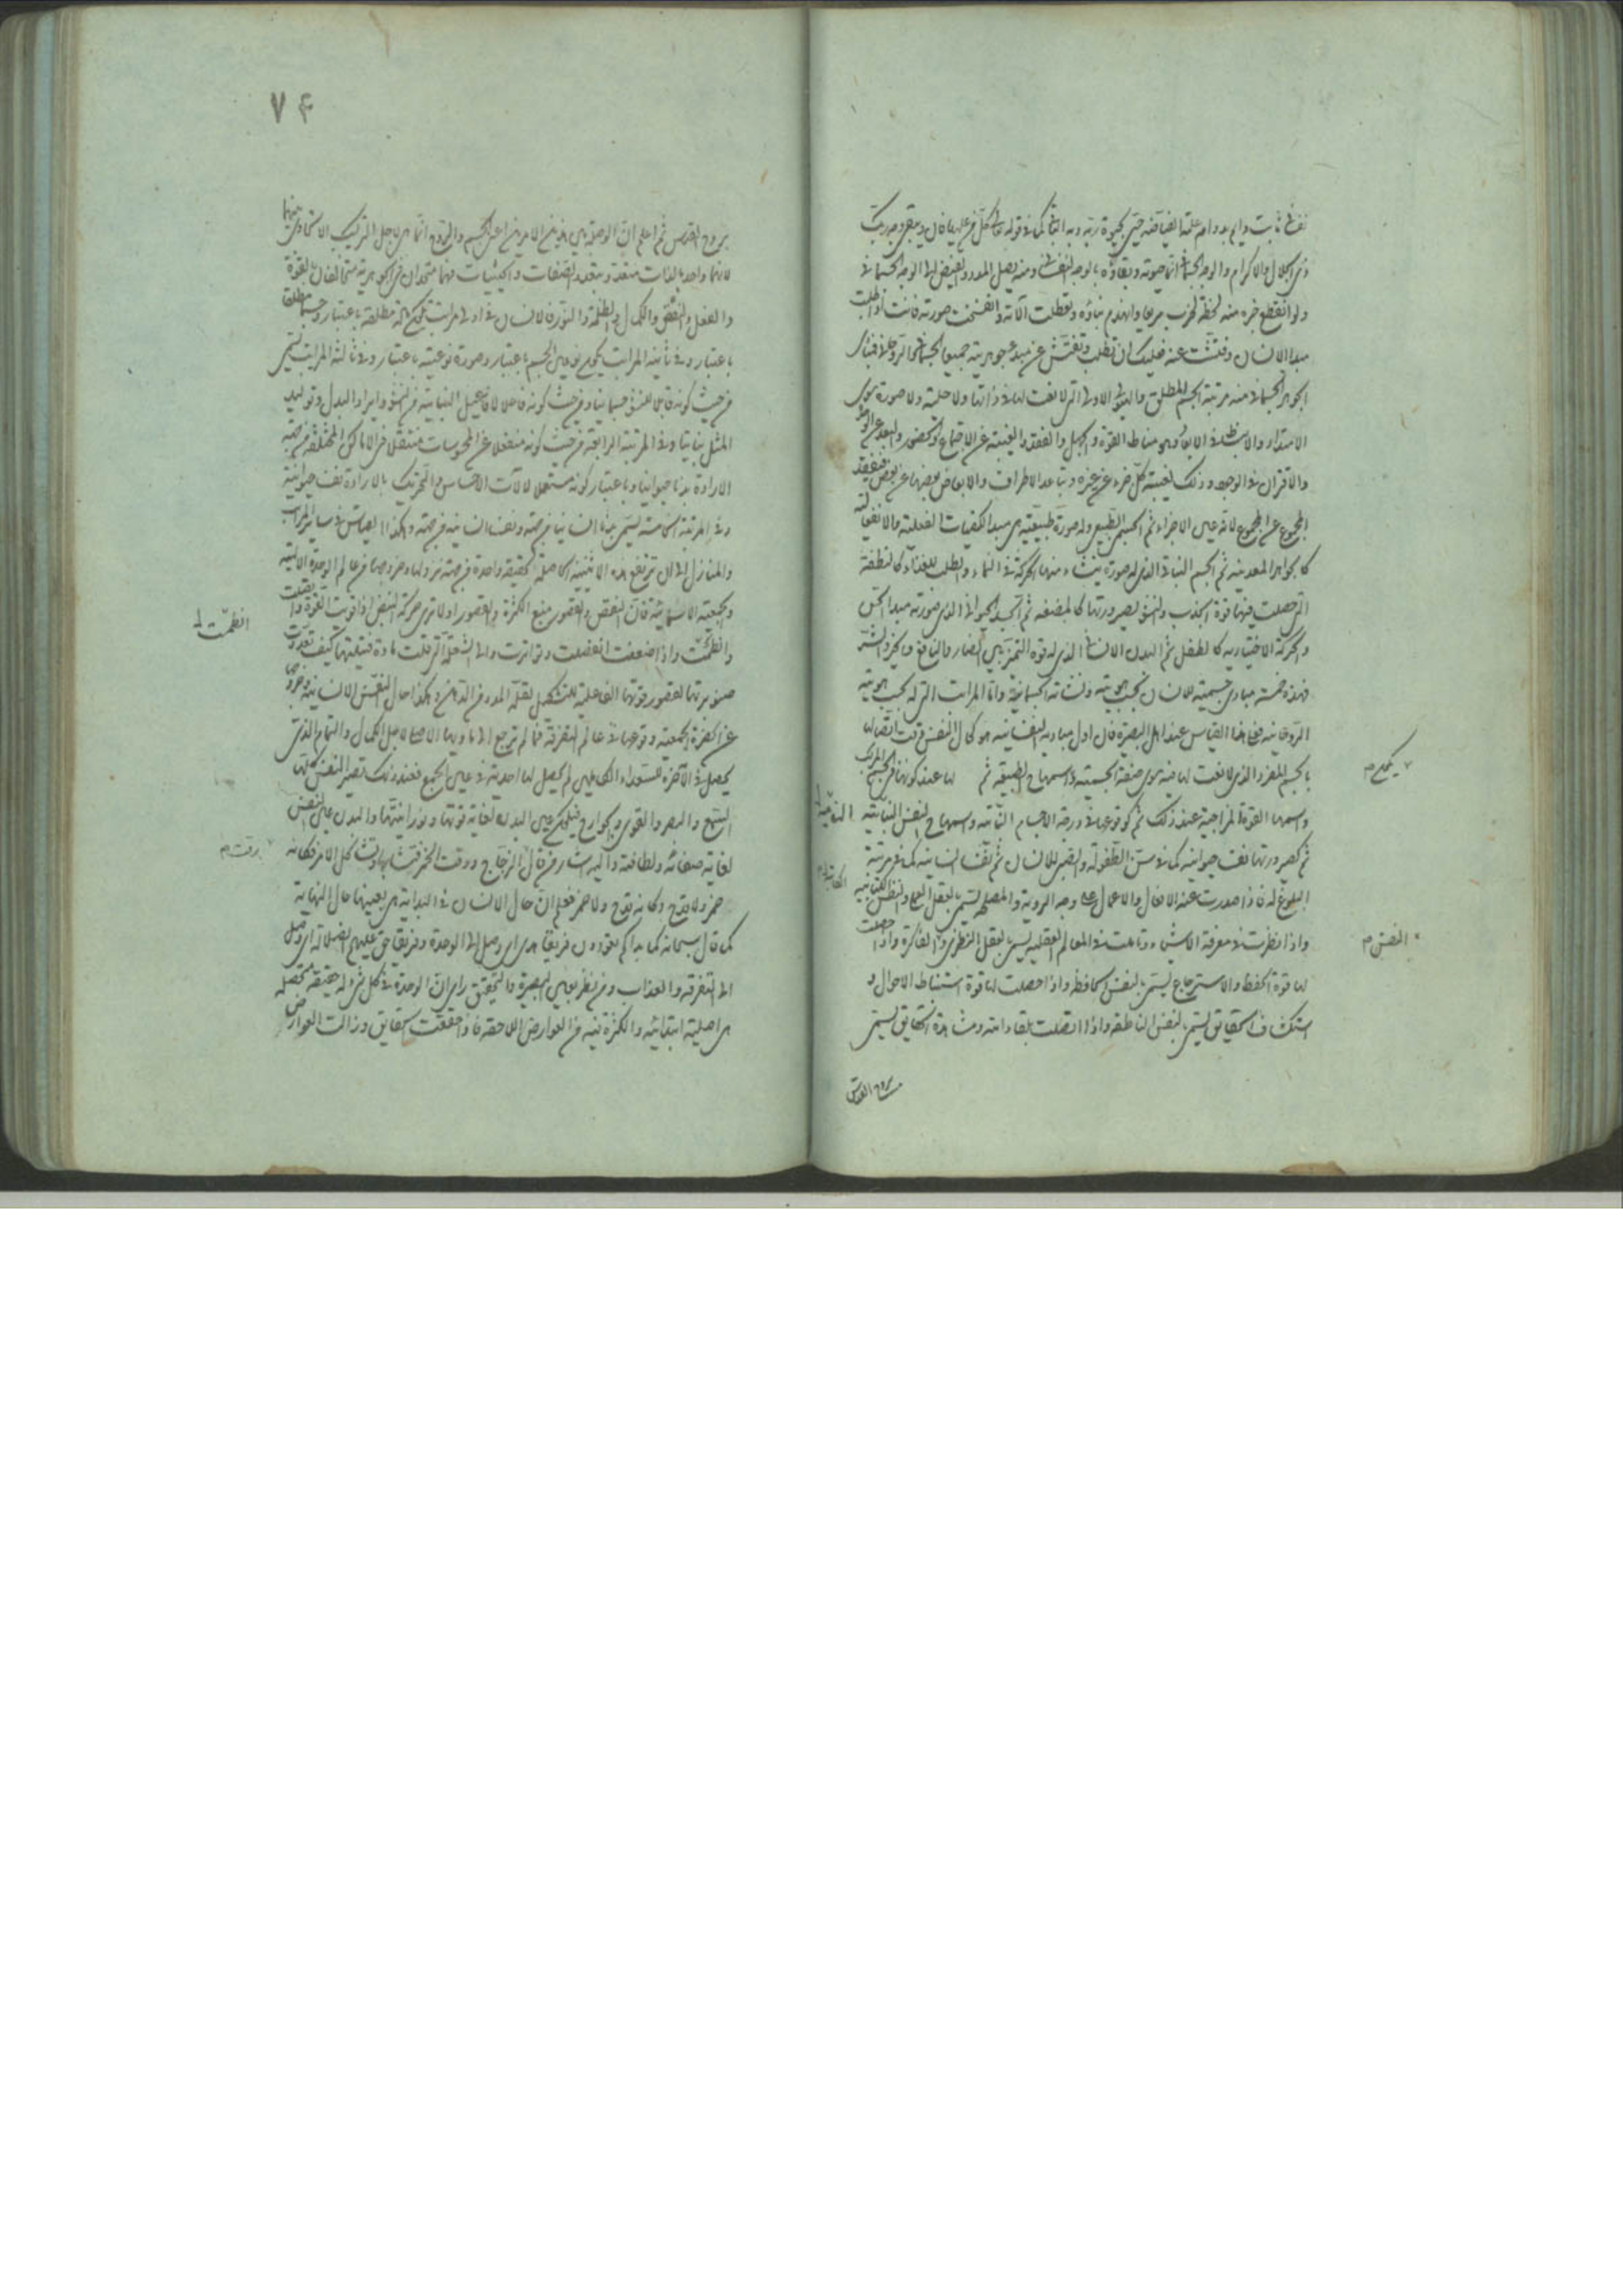 ثابت دايم بدوام علة الفياضة حى بحيوة ربه وبه البقاء كما فى قوله تعالى كل من عليها فان ويبقى وجه ربك
ذى الجلال والاكرام والوجه الجسمانى انما حيوته وبقاؤه بالوجه النفسانى ومنه يصل المدد والفيض الى الوجه الجسمانى
ولو انقطع خبره منه لحظة لخرب سريعا وانهدم بناؤه وتعطلت آلاته وانفسخت صورته فانت اذا طلبت
مبدا الانسان وفتشت عنه فعليك ان تطلب وتفتش عن مبدء جوهريته جميعا الجسمانى والروحانى
الجوهر الجسمانى منه مرتبة الجسم المطلق والهيولى الاولى التى لا نعت لها فى ذاتها ولا حلية ولا صورة سوى
الامتداد والانبساط فى الابعاد وهى مناط القوة والجهل والفقد والغيبة عن الاجتماع والحضور والبعد عن
والاقتران فى الوجود وذلك لغيبة كل جزء عن غيره وتباعد الاطراف والابعاض بعضها عن بعض
المجموع عن المجموع لانه عين الاجزاء ثم الجسم الطبيعى وله صورة طبيعية هى مبدا الكيفيات الفعلية والانفعالية
كالجواهر المعدنية ثم الجسم النباتى الذى له صورة ينشاء منها الحركة فى النماء والطلب للغذاء كالنطفة
التى حصلت فيها قوة الجذب والنمو لصيرورتها كالمضغة ثم الجسد الحيوانى الذى صورته مبدا الحس
والحركة الاختيارية كالطفل ثم البدن الانسانى الذى له قوة التميز بين المضار والنافع والخير والشر
فهذه خمسة مبادى جسمية للانسان بحسب هويته ونشاته الجسمانية واما المراتب التى له بحسب هويته
الروحانية فعلى هذا القياس عند اهل البصيرة فان اول مباديه النفسانية هو كمال النفس وقت اتصالها
بالجسم المفرد الذى لا نعت لها فيه سوى صفة الجسمية واسمها ح الطبيعة ثم لها عند كونها فى الجسم المركب
واسمها القوة المزاجية عند ذلك ثم كوقوعها فى درجة الاجسام النباتية واسمها ح النفس النباتية
ثم كصيرورتها نفسا حيوانية كما فى سن الطفولة والصبى للانسان ثم نفسا انسانية كما فى مرتبة
البلوغ له فاذا صدرت عنه الافعال والاعمال على وجه الروية والمصلحة يسمى بالعقل العملى
واذا نظرت فى معرفة الاشياء وتاملت فى المعالم العقلية يسمى بالعقل النظرى والفاكرة واذا حصلت
لها قوة الحفظ والاسترجاع يسمى بالنفس الحافظة واذا حصلت لها قوة استنباط الاحوال و
استكشاف الحقايق يسمى بالنفس الناطقة واذا اتصلت بلقاء الله ومشاهدة الحقايق يسمى
بروح القدس
يكون م
النفس م
٧٤
بروح القدس ثم اعلم ان الوحدة بين هذين الامرين اعنى الجسم والروح انما هى لاجل التركيب الاتحادى بينهما
لانهما واحد بالذات متعدد بتعدد الصفات والحيثيات فهما متحدان فى الجوهرية متخالفان بالقوة
والفعل والنقص والكمال والظلمة والنور فالانسان فى اولى المراتب يكون مطلقة باعتبار وجسما مطلقا
باعتبار وفى ثانية المراتب يكون نوعى الجسم باعتبار وصورة نوعية باعتبار وفى ثالثة المراتب يسمى
من حيث كونه قابل للنمو جسما نباتيا ومن حيث كونه فاعلا لافاعيل النباتية من النمو وايراد البدل وتوليد
المثل نباتيا وفى المرتبة الرابعة من حيث كونه منفعلا عن المحسوسات منتقلا من الاماكن المختلفة من جهة
الارادة بدنا حيوانيا وباعتبار كونه مستعملا لآلات الاحساس والتحريك بالارادة نفسا حيوانية
وفى المرتبة الخامسة يسمى بدنا انسانيا من جهة ونفسا انسانية من جهة وهكذا القياس فى ساير المراتب
والمنازل الى ان يرتفع هذه الاثنينية الحاصلة لحقيقة واحدة من جهة نزولها وخروجها من عالم الوحدة الالهية
والجمعية الاسمائية فان النقص والقصور منبع الكثرة والقصور اولا ترى حركة النبض اذا قويت القوة
وانظمت واذا ضعفت انفصلت وتواترت والى الشعلة التى قلت مادة فتيلتها كيف تعددت
صنوبرتها لقصور قوتها الفاعلية للتشكيل لقلة المدد من الدهن وهكذا حال النفس الانسانية وخروجها
عن الحضرة الجمعية ووقوعها فى عالم التفرقة فما لم ترجع الى ماويها الاصلى لاجل الكمال والتمام الذى
يحصل فى الآخرة للسعداء الكاملين لم يحصل لها احدية فى عين الجمع فعند ذلك تصير النفس كلها
السمع والبصر والقوى والجوارح فيكون عين البدن لغاية قوتها ونورانيتها والبدن عين النفس
لغاية صفائه ولطافته واليه اشار من قال رق الزجاج ورقت الخمر فتشابها وتشاكل الامر فكانه
خمر ولا قدح وكانه قدح ولا خمر فعلم ان حال الانسان فى البداية هى بعينها حال النهاية
كما قال سبحانه كما بداكم تعودون فريقا هدى اى وصل الى الوحدة وفريقا حق عليهم الضلالة اى وصل
الى التفرقة والعذاب ومن نظر بعين البصيرة والتحقيق راى ان الوحدة فى كل شىء له حقيقة محصلة
هى اصلية ابتدائية والكثرة فيه من العوارض اللاحقة فاذا حققت الحقايق وزالت العوارض
انظمت
رقت م